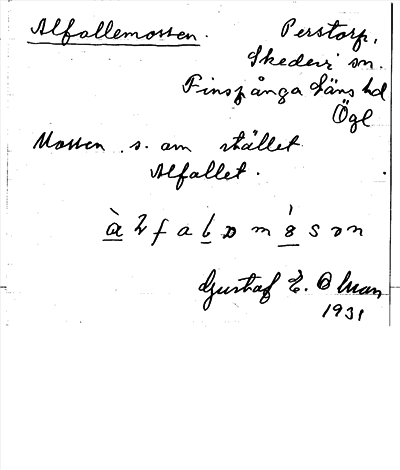 Alfallemossen.
Perstorp,
Skedevi sn.
Finspånga läns hd
Ögl
Mossen s. om stället
Alfallet.
Gustaf E. Olman
1931